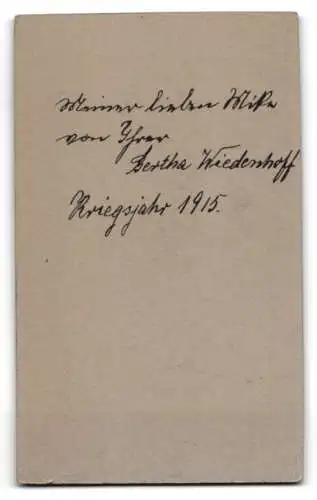 Meiner lieben Mike
von Ihrer
Bertha Wiedenhoff
Kriegsjahr 1915.